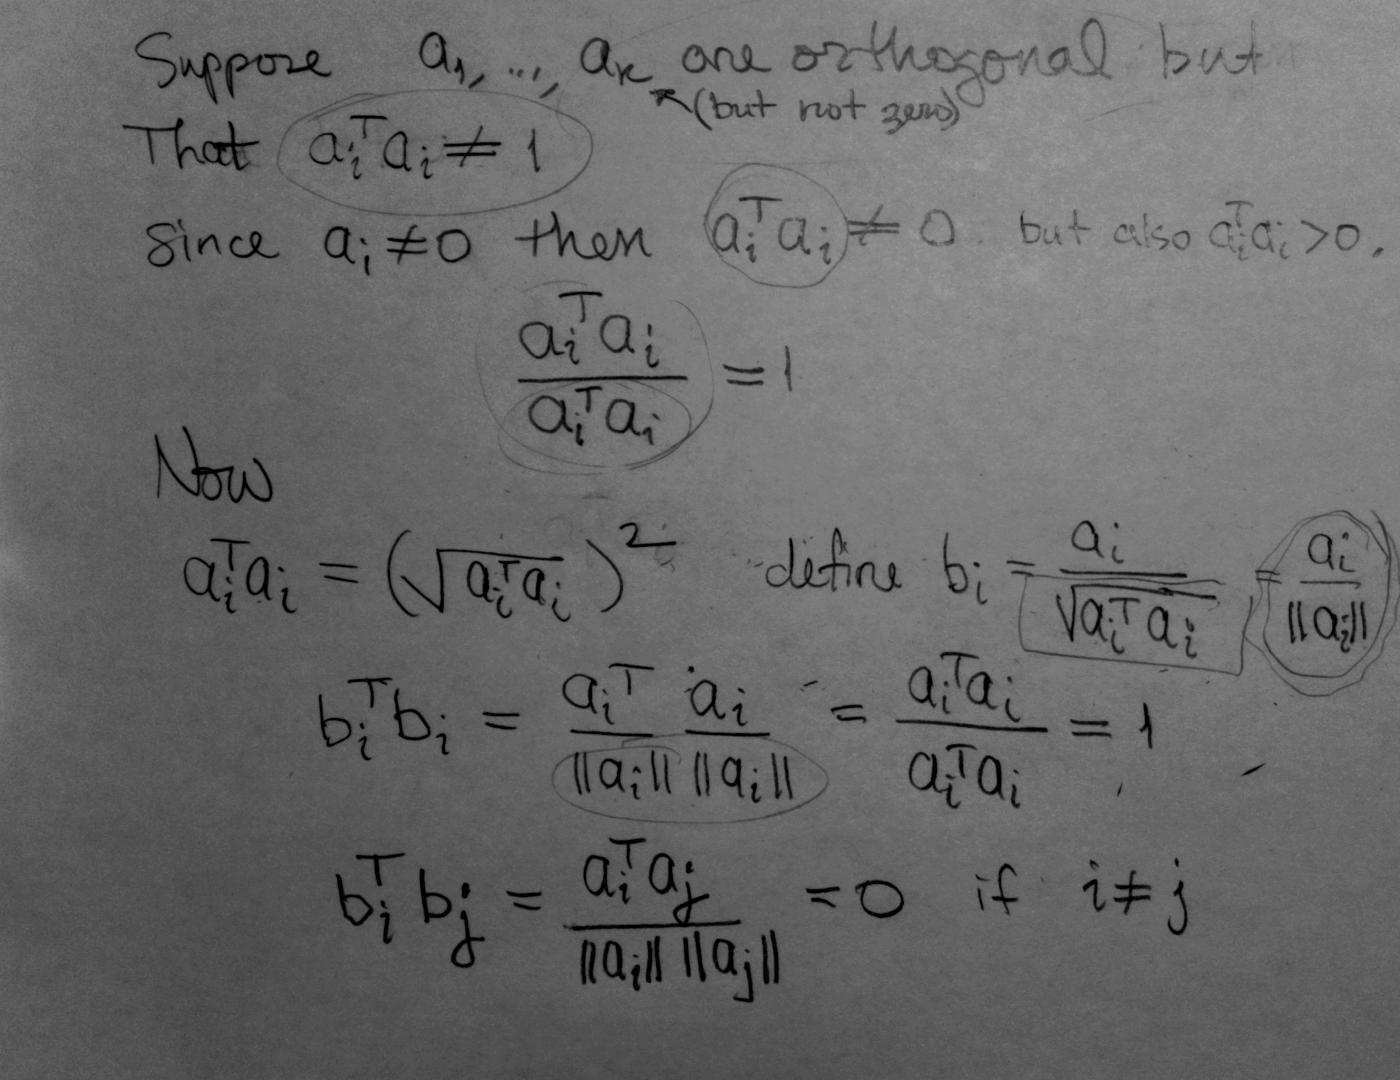 Suppose a₁, ..., aₖ are orthogonal but
(but not zero)
That aᵢᵀaᵢ ≠ 1
since aᵢ ≠ 0 then aᵢᵀaᵢ ≠ 0. but also aᵢᵀaᵢ > 0.
aᵢᵀaᵢ / aᵢᵀaᵢ = 1
Now
aᵢᵀaᵢ = (√aᵢᵀaᵢ)² define bᵢ = aᵢ / √aᵢᵀaᵢ = aᵢ / ||aᵢ||
bᵢᵀbᵢ = aᵢᵀ / ||aᵢ|| aᵢ / ||aᵢ|| = aᵢᵀaᵢ / aᵢᵀaᵢ = 1
bᵢᵀbⱼ = aᵢᵀaⱼ / ||aᵢ|| ||aⱼ|| = 0 if i ≠ j